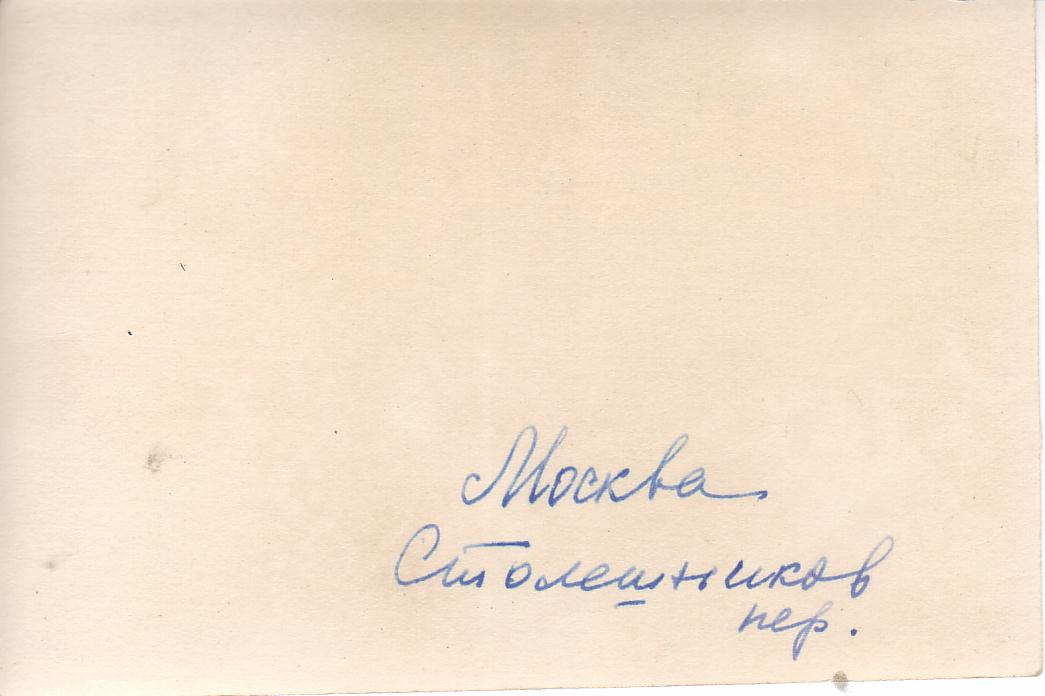 Москва
Столешников
пер.